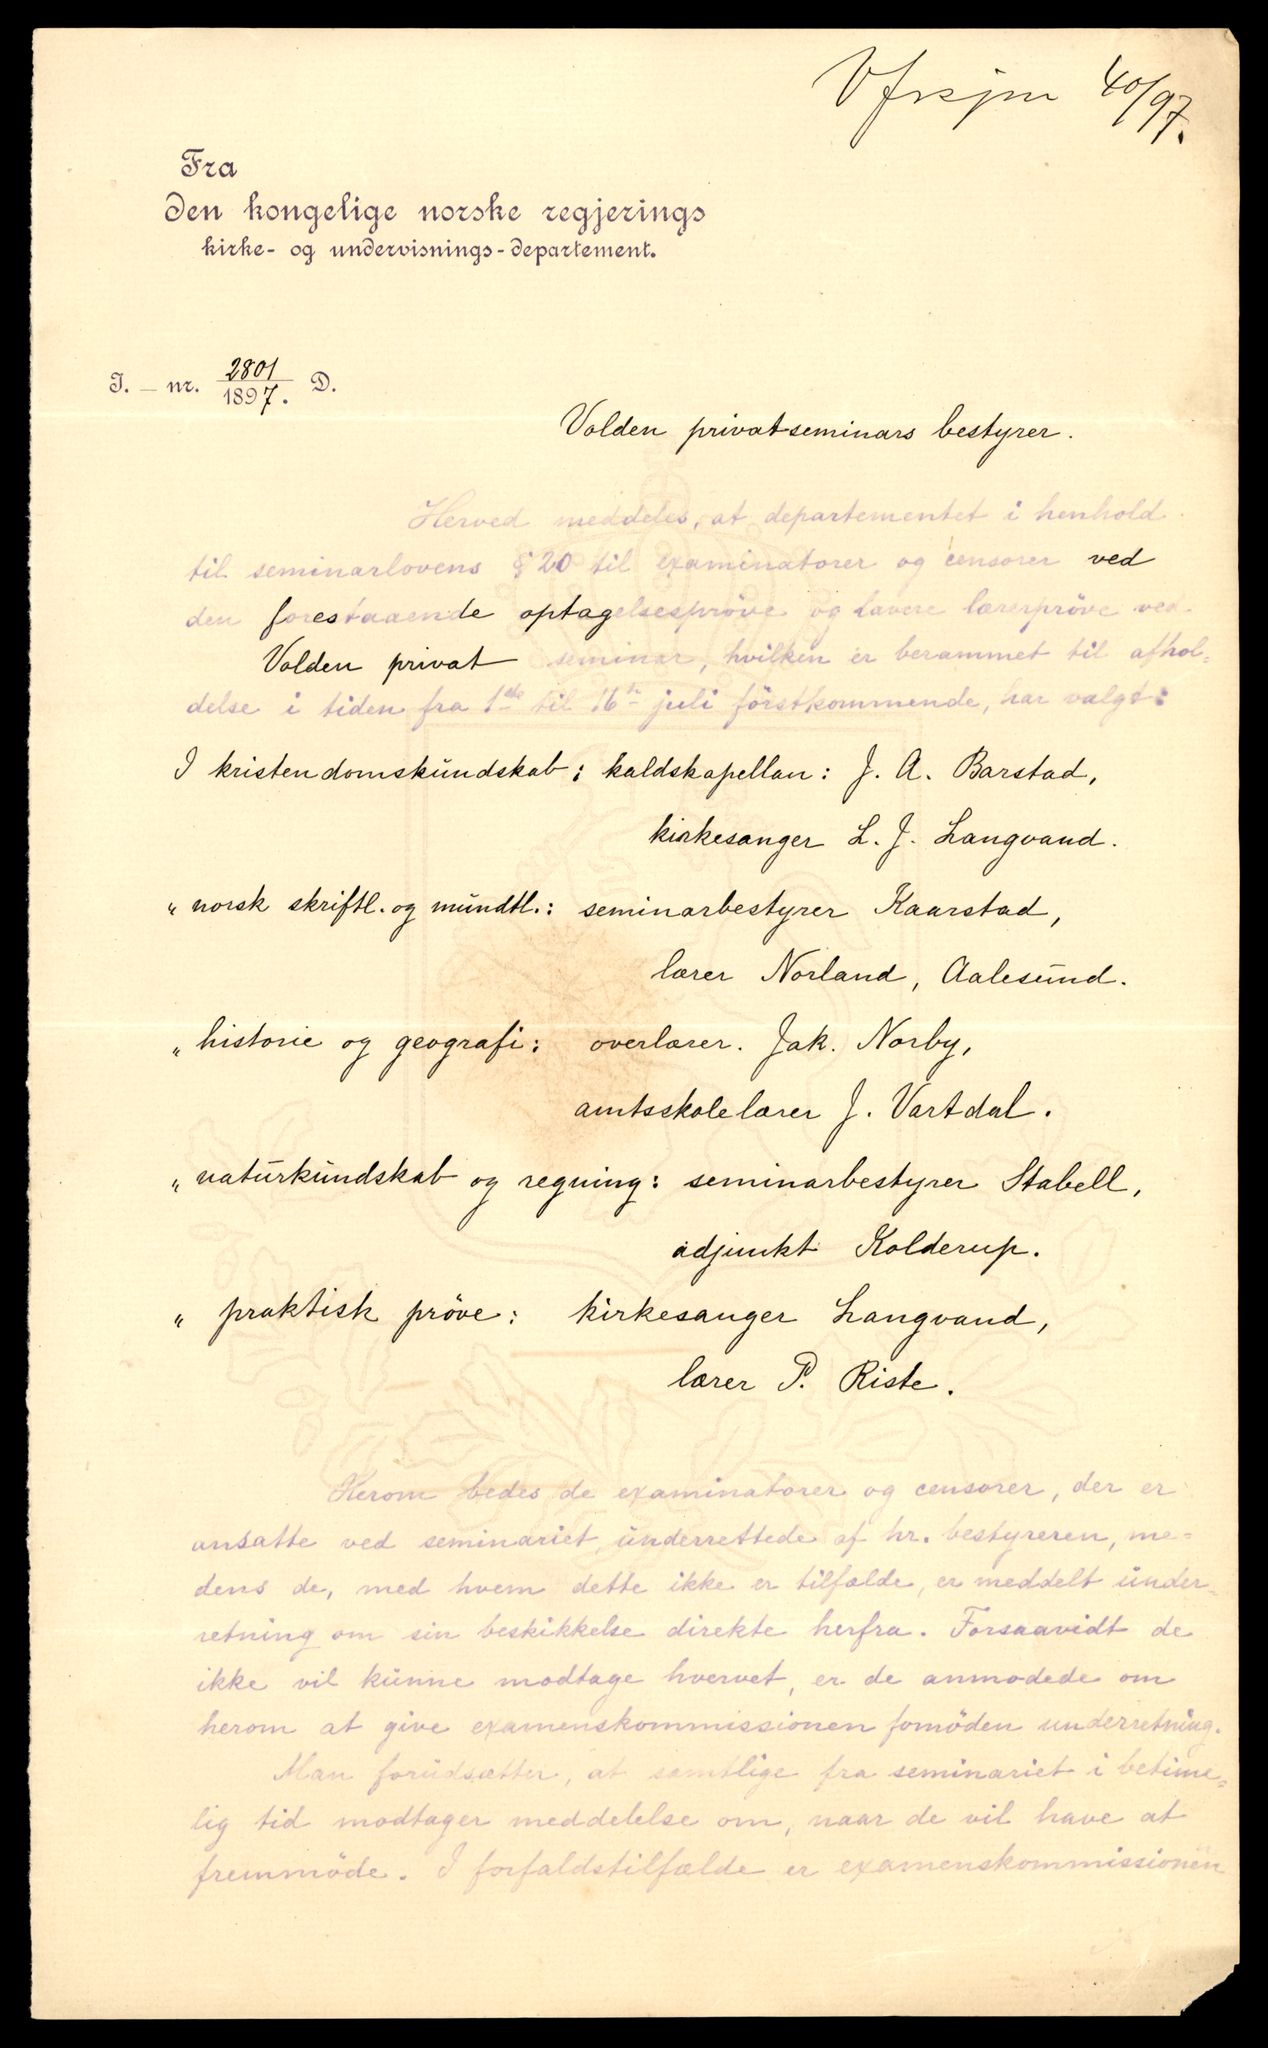 40/97.
Fra
den kongelige norske regjerings
kirke- og undervisnings-departement.
J. - nr. 2801/1897. D.
Volden privatseminars bestyrer.
Herved meddeles, at departementet i henhold
til seminarlovens § 20 til examinatorer og censorer ved
den forestaaende optagelsespröve og lavere lærerpröve ved
Volden privat seminar, hvilken er berammet til afhol=
delse i tiden fra 1ste til 16de juli förstkommende, har valgt:
I kristendomskundskab: kaldskapellan: J. A. Barstad,
kirkesanger L. J. Langvand.
" norsk skriftl. og mundtl.: seminarbestyrer Kaarstad,
lærer Norland, Aalesund.
" historie og geografi: overlærer. Jak. Norby,
amtsskolelærer J. Vartdal.
" naturkundskab og regning: seminarbestyrer Stabell,
adjunkt Kolderup.
" praktisk pröve: kirkesanger Langvand,
lærer P. Riste.
Herom bedes de examinatorer og censorer, der er
ansatte ved seminariet, underrettede af hr. bestyreren, me=
dens de, med hvem dette ikke er tilfælde, er meddelt under=
retning om sin beskikkelse direkte herfra. Forsaavidt de
ikke vil kunne modtage hvervet, er de anmodede om
herom at give examenskommissionen fornöden underretning.
Man forudsætter, at samtlige fra seminariet i betime=
lig tid modtager meddelelse om, naar de vil have at
fremmöde. I forfaldstilfælde er examenskommissionen